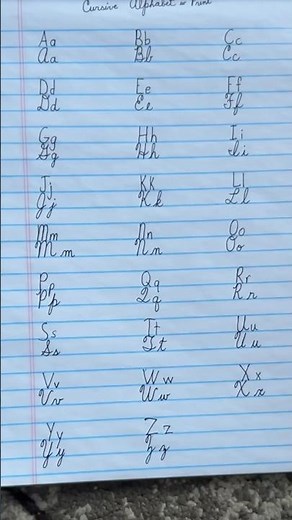 Cursive Alphabet in Print
Aa Bb Cc
Aa Bb Cc
Dd Ee Ff
Dd Ee Ff
Gg Hh Ii
Gg Hh Ii
Jj Kk Ll
Jj Kk Ll
Mm Nn Oo
Mm Nn Oo
Pp Qq Rr
Pp Qq Rr
Ss Tt Uu
Ss Tt Uu
Vv Ww Xx
Vv Ww Xx
Yy Zz
Yy Zz